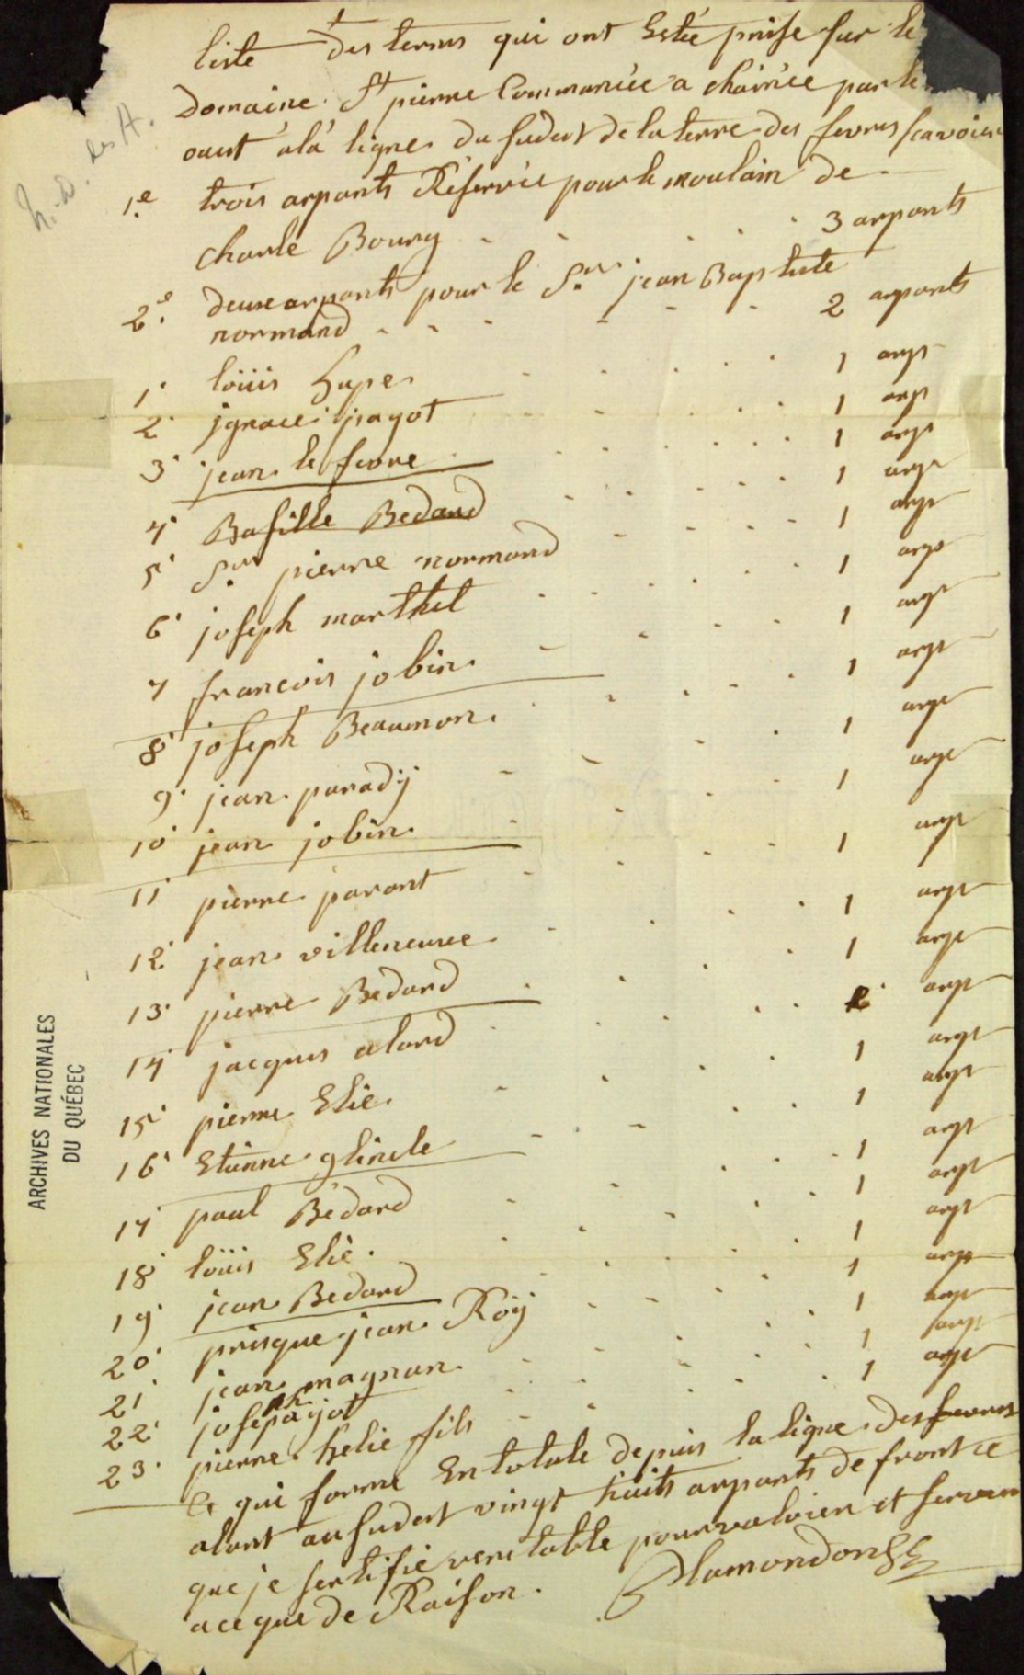 liste des terres qui ont Estée prise sur le
Domaine St pierre Commancée a chainée par le
ouest a la ligne du sudest de la terre des fevres scavoir
1.e trois arpants Réservée pour le moulain de
charle Bourg 3 arpants
2.e deux arpants pour le Sr. jean Baptiste
normand 2 arpants
1 loüis hupe 1 arpt
2 jgnace pagot 1 arpt
3 jean lefevre 1 arpt
4 Basille Bedard 1 arpt
5 Sr pierre normand 1 arpt
6 joseph marthel 1 arpt
7 francois jobin 1 arpt
8 joseph Beaumon 1 arpt
9 jean parady 1 arpt
10 jean jobin 1 arpt
11 pierre parant 1 arpt
12 jean villeneuve 1 arpt
13 pierre Bedard 1 arpt
14 jacques alard 2 arpt
15 pierre Elie 1 arpt
16 Etienne glinele 1 arpt
17 paul Bédard 1 arpt
18 loüis Elie 1 arpt
19 jean Bedard 1 arpt
20 prisque jean Roÿ 1 arpt
21 jean magnan 1 arpt
22 joseph pajot 1 arpt
23 pierre helie fils 1 arpt
Ce qui forme En totale depuis la ligne des fevres
alant au sudest vingt huits arpants de front ce
que je sertifie veritable pour valoir et servir
a ce que de Raison.
Plamondon
ARCHIVES NATIONALES
DU QUÉBEC